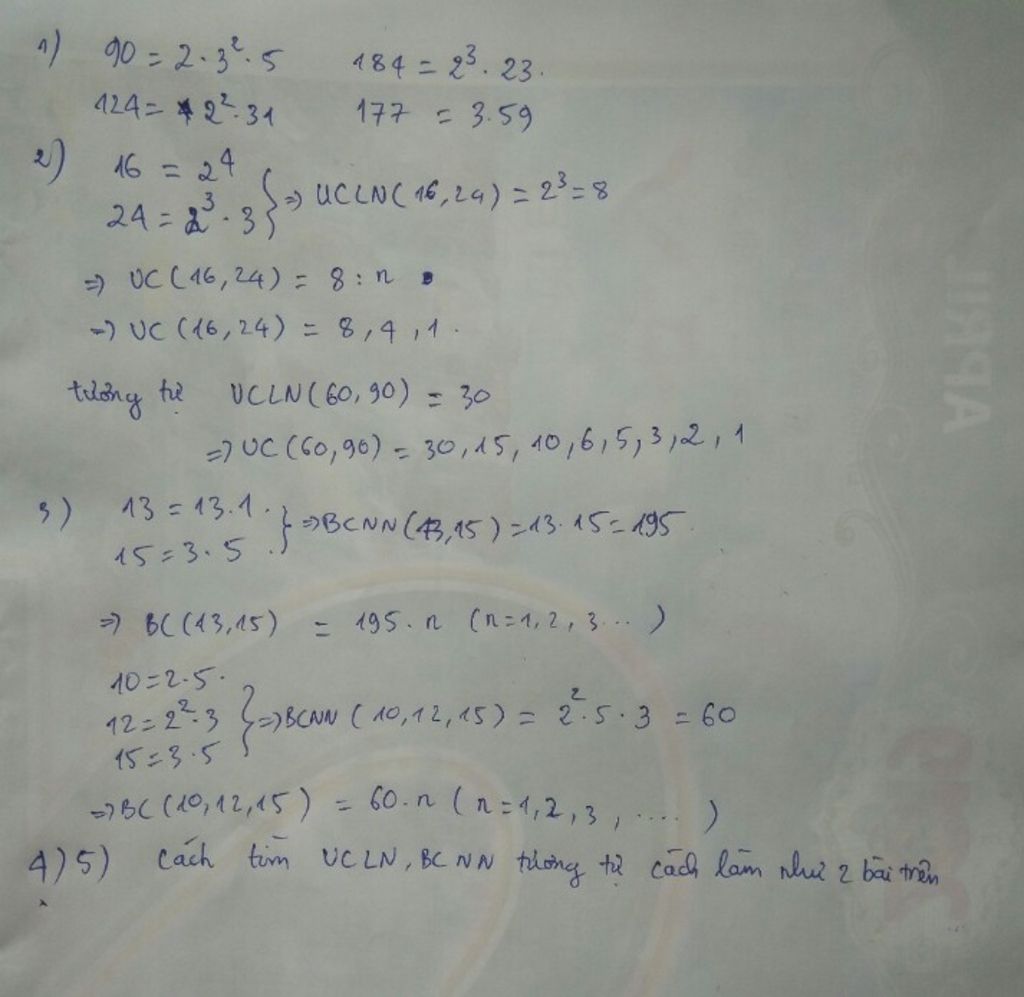 1) 90 = 2 . 3² . 5 184 = 2³ . 23 .
124 = 2² . 31 177 = 3.59
2) 16 = 2⁴
24 = 2³ . 3 } => UCLN(16,24) = 2³ = 8
=> UC(16,24) = 8 : n
=> UC(16,24) = 8, 4, 1 .
tương tự UCLN(60,90) = 30
=> UC(60,90) = 30, 15, 10, 6, 5, 3, 2, 1
3) 13 = 13.1 .
15 = 3 . 5 . } => BCNN(13,15) = 13 . 15 = 195
=> BC(13,15) = 195 . n (n=1, 2, 3 ... )
10 = 2.5 .
12 = 2² . 3 } => BCNN (10,12,15) = 2² . 5 . 3 = 60
15 = 3.5
=> BC(10,12,15) = 60 . n (n=1,2,3, .... )
4) 5) Cách tìm UCLN, BCNN tương tự cách làm như 2 bài trên
APRIL